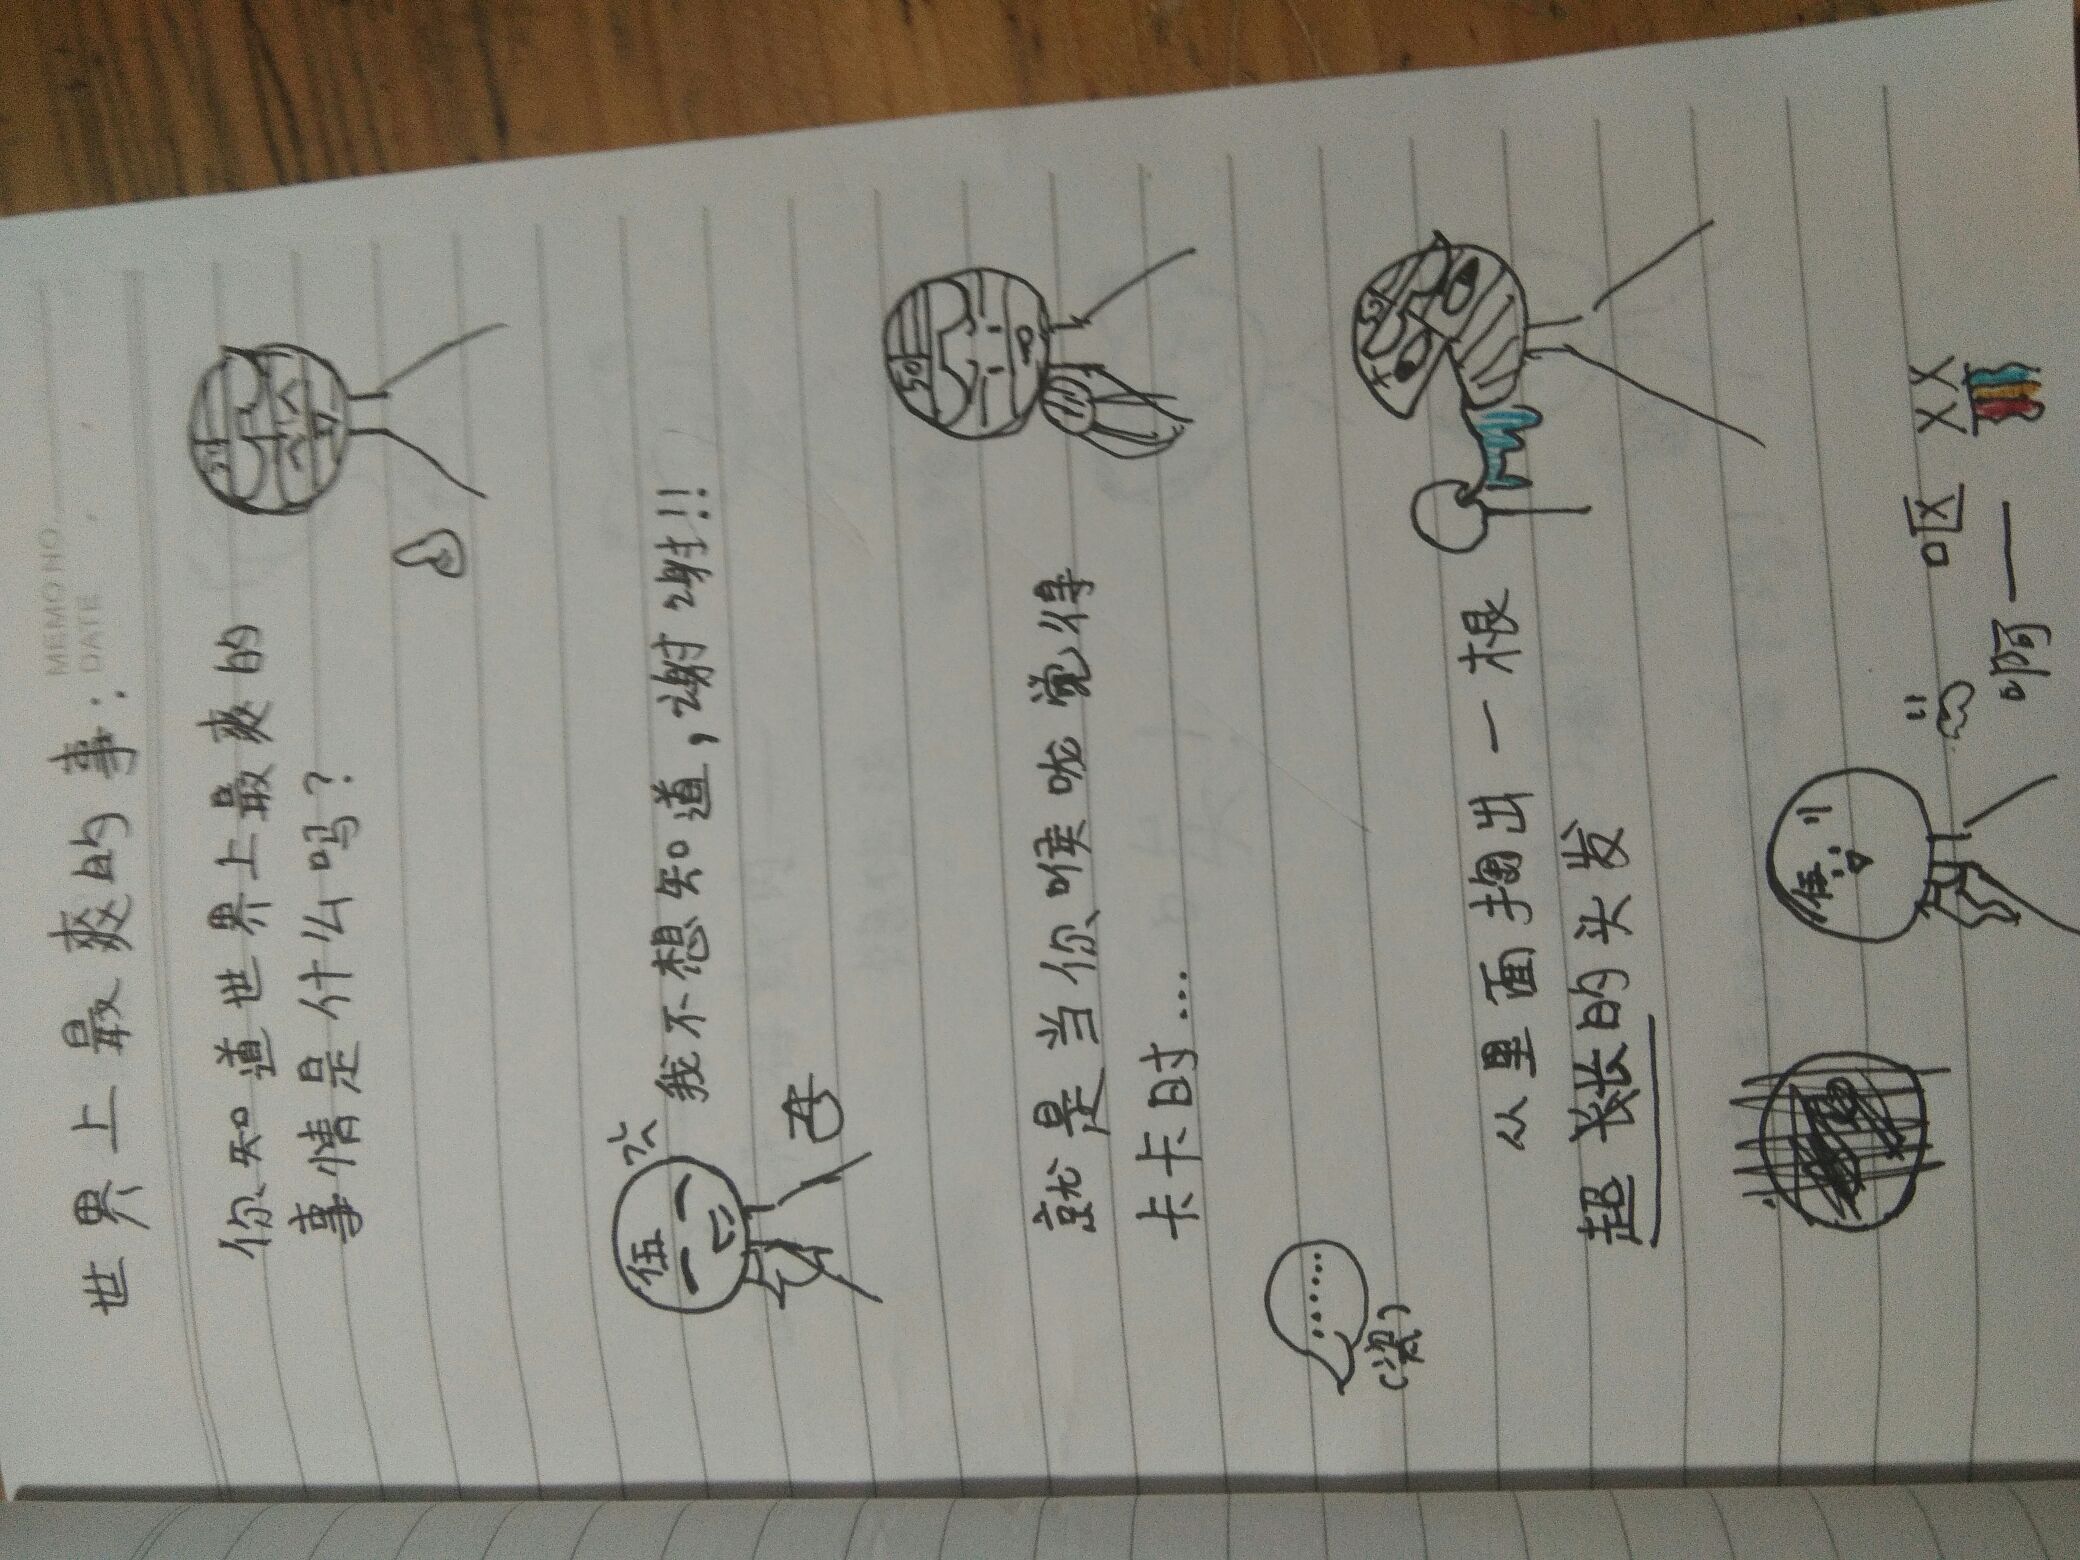 MEMO NO.
DATE
世界上最爽的事：
你知道世界上最爽的
事情是什么吗？
50
伍
我不想知道，谢谢！！
就是当你喉咙觉得
卡卡时…
50
……
从里面掏出一根
超长的头发
50
伍
呕 XX
啊——